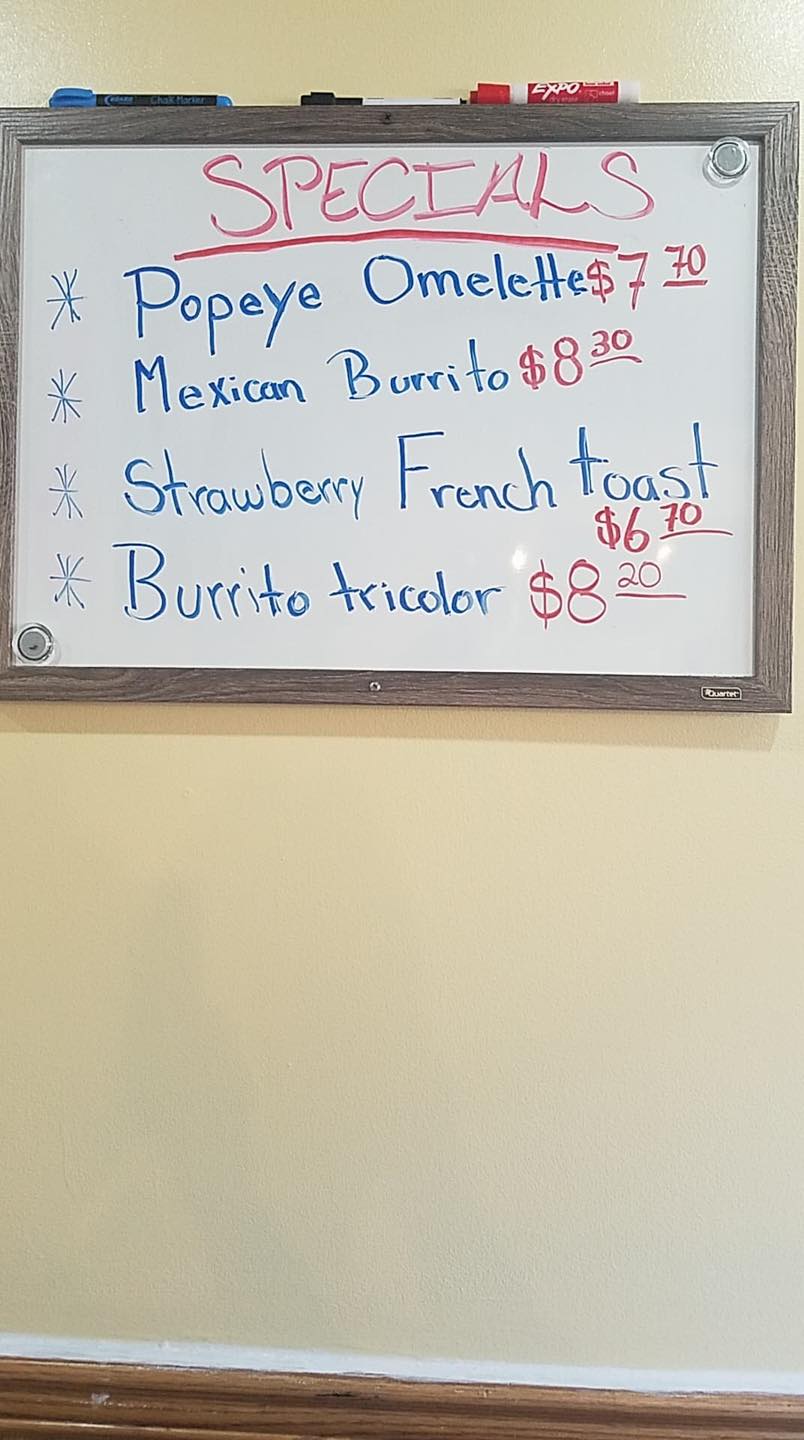 Chalk Marker
EXPO
dry erase
SPECIALS
* Popeye Omelette $7 70
* Mexican Burrito $8 30
* Strawberry French toast
$6 70
* Burrito tricolor $8 20
Quartet